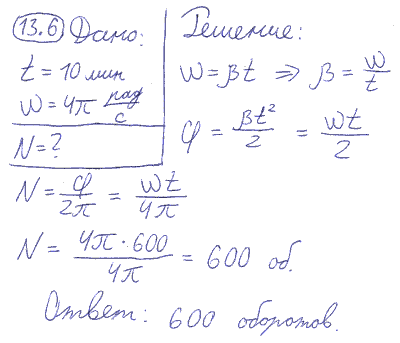 13.6 Дано:
t = 10 мин
ω = 4π рад/с
N = ?
Решение:
ω = βt ⇒ β = ω/t
φ = βt²/2 = ωt/2
N = φ/2π = ωt/4π
N = 4π · 600/4π = 600 об.
Ответ: 600 оборотов.